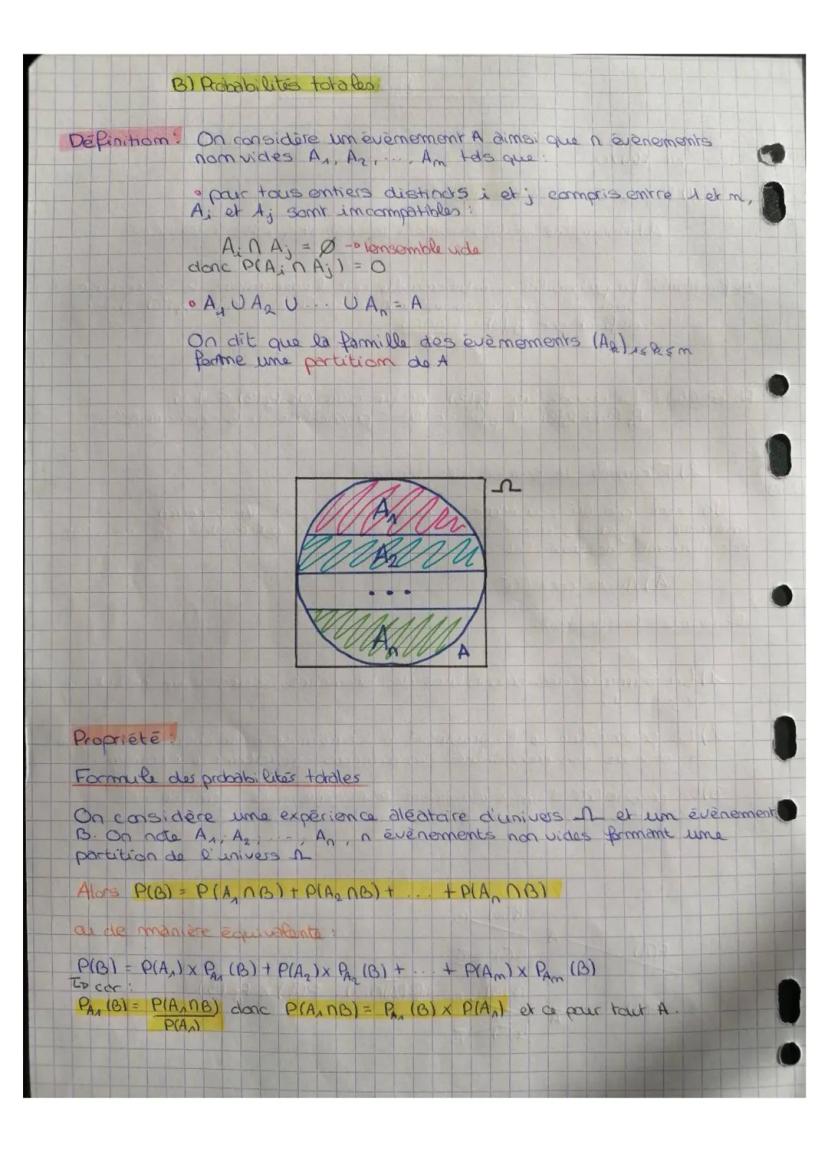 B) Probabilités totales
Définition : On considère un évènement A ainsi que n évènements
non vides A₁, A₂, ..., Aₙ tels que :
• pour tous entiers distincts i et j compris entre 1 et n,
Aᵢ et Aⱼ sont incompatibles :
Aᵢ ∩ Aⱼ = ∅ → l'ensemble vide
donc P(Aᵢ ∩ Aⱼ) = 0
• A₁ ∪ A₂ ∪ ... ∪ Aₙ = A
On dit que la famille des évènements (Aₖ)₁≤ₖ≤ₙ
forme une partition de A
Ω
A₁
A₂
...
Aₙ
A
Propriété :
Formule des probabilités totales
On considère une expérience aléatoire d'univers Ω et un évènement
B. On note A₁, A₂, ..., Aₙ, n évènements non vides formant une
partition de l'univers Ω
Alors P(B) = P(A₁ ∩ B) + P(A₂ ∩ B) + ... + P(Aₙ ∩ B)
ou de manière équivalente :
P(B) = P(A₁) × P_A₁(B) + P(A₂) × P_A₂(B) + ... + P(Aₙ) × P_Aₙ(B)
↳ car :
P_A₁(B) = P(A₁∩B)/P(A₁) donc P(A₁∩B) = P_A₁(B) × P(A₁) et ce pour tout A.